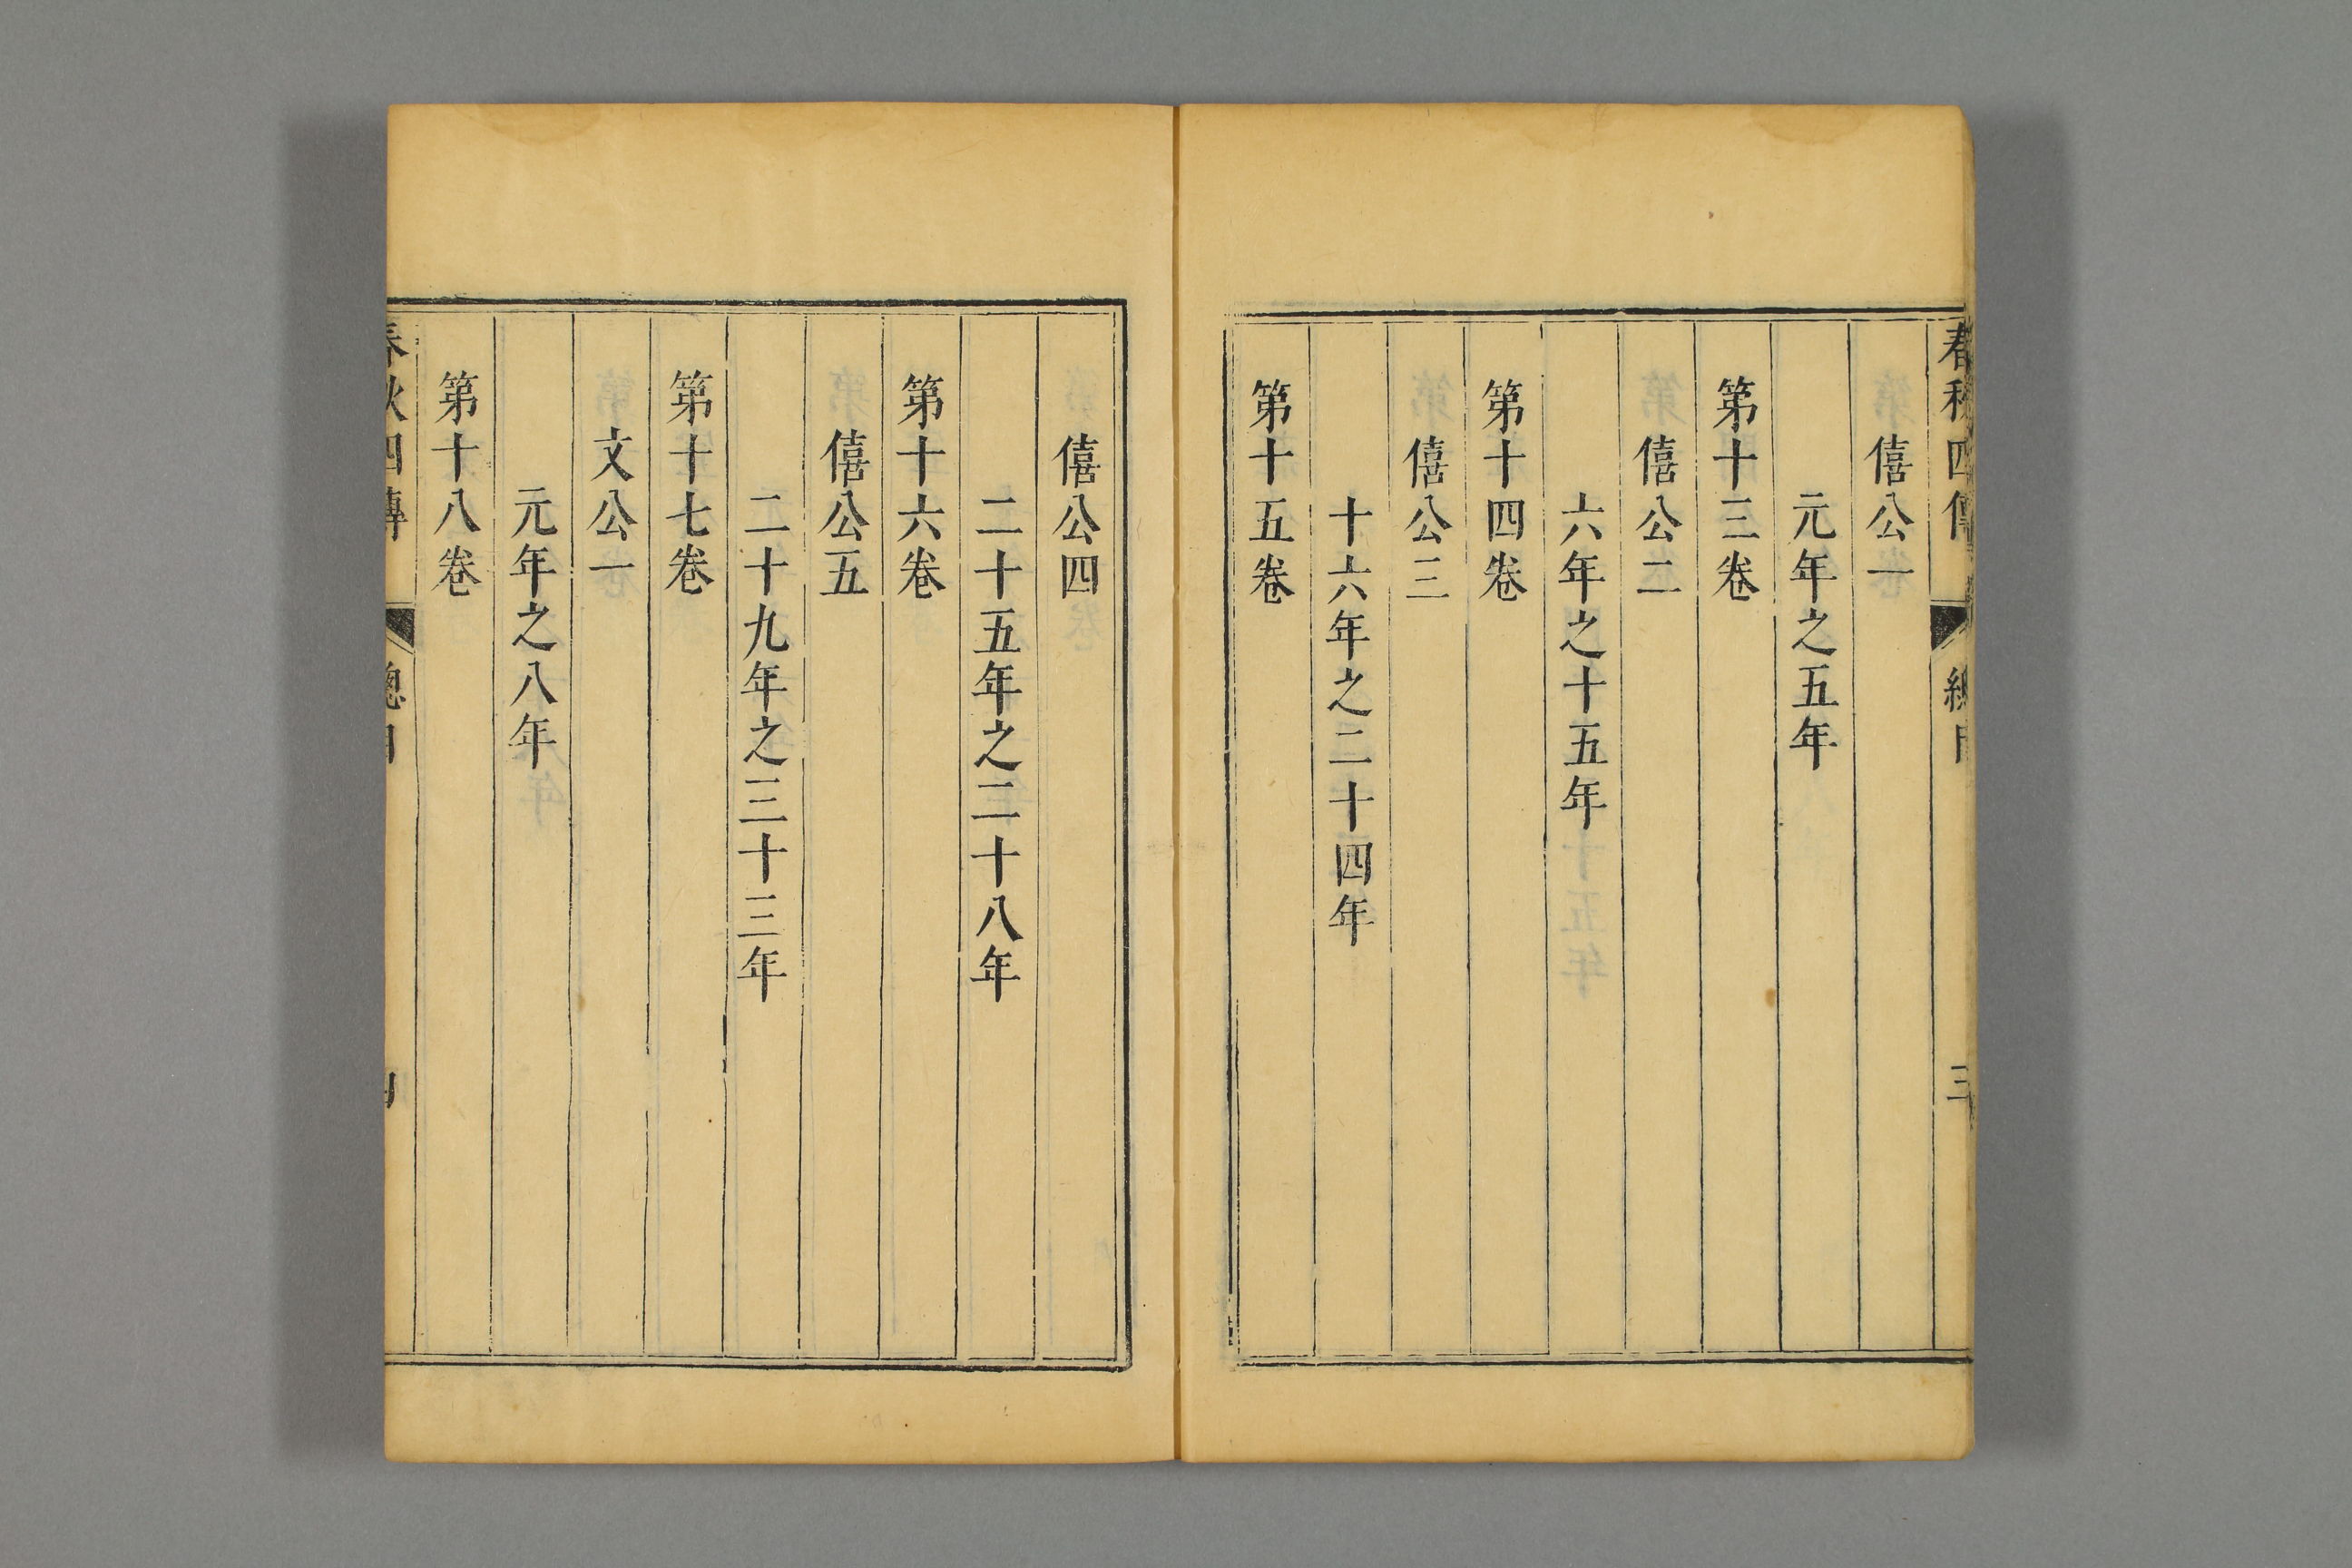 春秋四傳 總目 三
僖公一
元年之五年
第十三卷
僖公二
六年之十五年
第十四卷
僖公三
十六年之二十四年
第十五卷
僖公四
二十五年之二十八年
第十六卷
僖公五
二十九年之三十三年
第十七卷
文公一
元年之八年
第十八卷
春秋四傳 總目